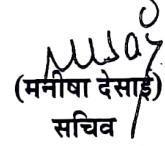 (मनीषा देसाई)
सचिव